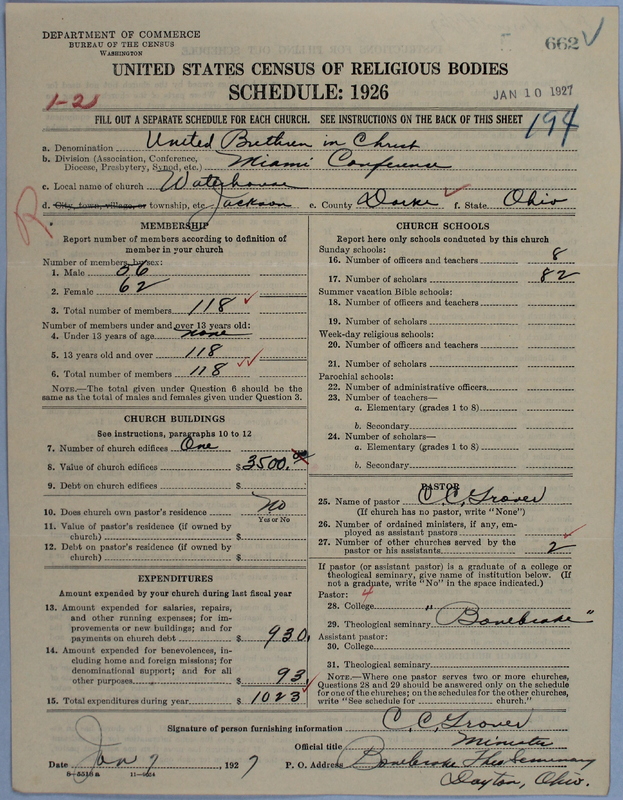 DEPARTMENT OF COMMERCE
BUREAU OF THE CENSUS
WASHINGTON
662
UNITED STATES CENSUS OF RELIGIOUS BODIES
SCHEDULE: 1926
JAN 10 1927
1-25
FILL OUT A SEPARATE SCHEDULE FOR EACH CHURCH. SEE INSTRUCTIONS ON THE BACK OF THIS SHEET
194
a. Denomination United Brethren in Christ
b. Division (Association, Conference, Diocese, Presbytery, Synod, etc.) Miami Conference
c. Local name of church Waterhouse
d. City, town, village, or township, etc. Jackson e. County Darke f. State Ohio
R
MEMBERSHIP
Report number of members according to definition of
member in your church
Number of members, by sex:
1. Male 56
2. Female 62
3. Total number of members 118
Number of members under and over 13 years old:
4. Under 13 years of age none
5. 13 years old and over 118
6. Total number of members 118
NOTE.—The total given under Question 6 should be
same as the total of males and females given under Question 3.
CHURCH BUILDINGS
See instructions, paragraphs 10 to 12
7. Number of church edifices One
8. Value of church edifices $3500.00
9. Debt on church edifices $
10. Does church own pastor's residence No
Yes or No
11. Value of pastor's residence (if owned by
church) $
12. Debt on pastor's residence (if owned by
church) $
EXPENDITURES
Amount expended by your church during last fiscal year
13. Amount expended for salaries, repairs,
and other running expenses; for im-
provements or new buildings; and for
payments on church debt $ 930.
14. Amount expended for benevolences, in-
cluding home and foreign missions; for
denominational support; and for all
other purposes $ 93
15. Total expenditures during year $ 1023
CHURCH SCHOOLS
Report here only schools conducted by this church
Sunday schools:
16. Number of officers and teachers 8
17. Number of scholars 82
Summer vacation Bible schools:
18. Number of officers and teachers
19. Number of scholars
Week-day religious schools:
20. Number of officers and teachers
21. Number of scholars
Parochial schools:
22. Number of administrative officers
23. Number of teachers—
a. Elementary (grades 1 to 8)
b. Secondary
24. Number of scholars—
a. Elementary (grades 1 to 8)
b. Secondary
PASTOR
25. Name of pastor C. C. Grover
(If church has no pastor, write "None")
26. Number of ordained ministers, if any, em-
ployed as assistant pastors
27. Number of other churches served by the
pastor or his assistants 2
If pastor (or assistant pastor) is a graduate of a college or
theological seminary, give name of institution below. (If
not a graduate, write "No" in the space indicated.)
Pastor: 4
28. College
29. Theological seminary "Bonebrake"
Assistant pastor:
30. College
31. Theological seminary
NOTE.—Where one pastor serves two or more churches,
Questions 28 and 29 should be answered only on the schedule
for one of the churches; on the schedules for the other churches,
write "See schedule for church."
Signature of person furnishing information C. C. Grover
Official title Minister
Date Jan 7, 1927 P. O. Address Bonebrake Theo Seminary
8—5518a 11—9554
Dayton, Ohio.